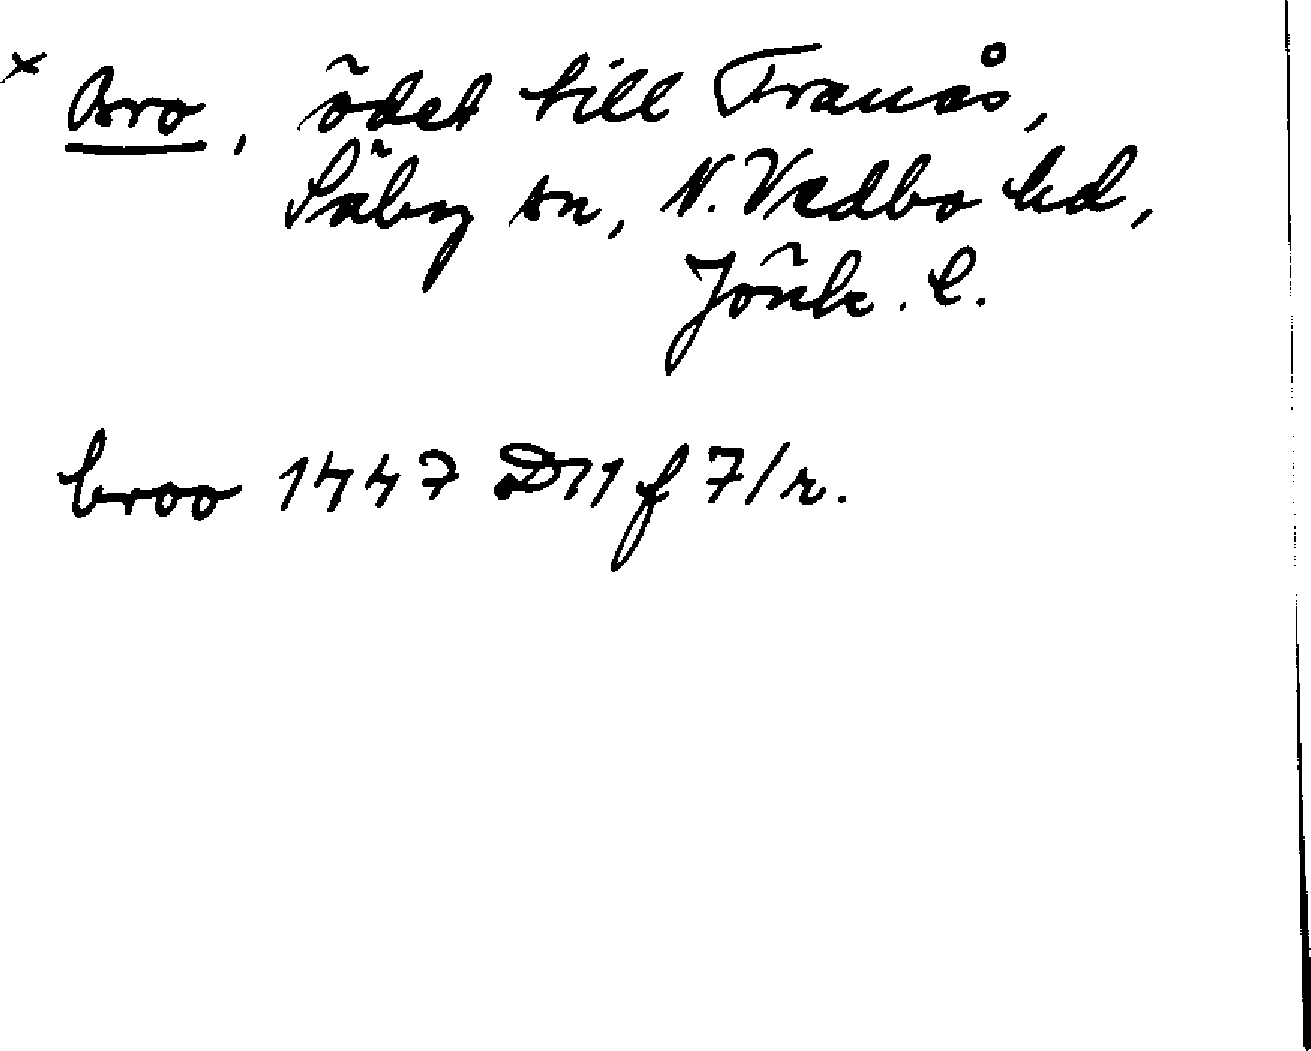 × Bro, ödet till Tranås,
Säby sn, N. Vedbo hd,
Jönk. l.
broo 1447 D11 f 7/r.